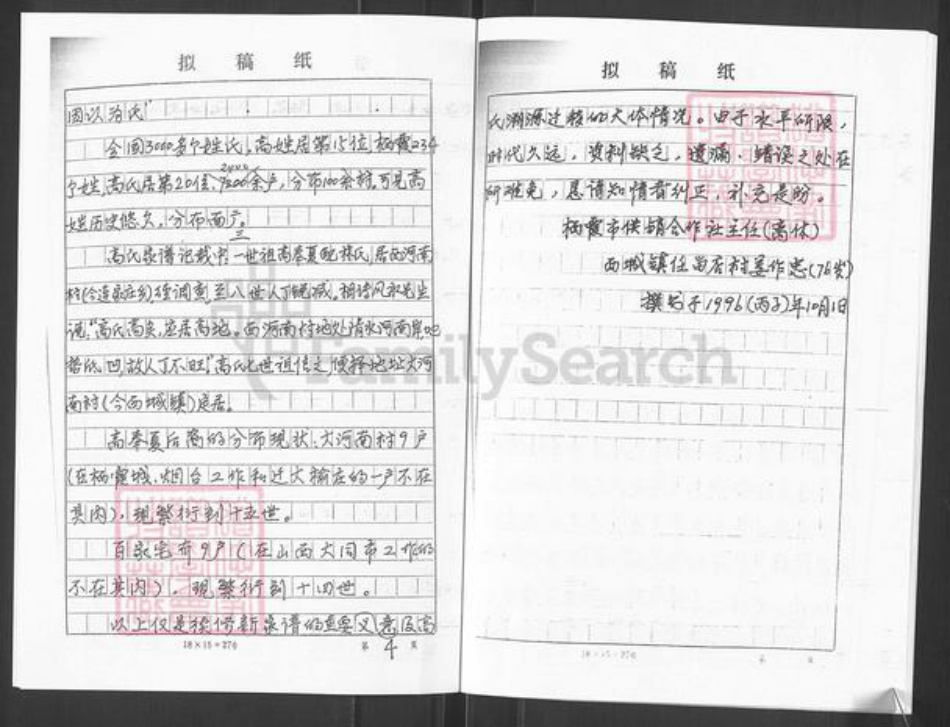 拟 稿 纸
因以为氏"
全国3000多个姓氏,高姓居第15位,栖霞234
2400
个姓,高氏居第20位,7200余户,分布100余村。可见高
姓历史悠久,分布面广。
三
高氏家谱记载:一世祖高奉夏配林氏,居西河南
村(今连家庄乡)经调查,至八世人丁锐减。相传风水先生
说,"高氏高矣,应居高地。西河南村地处清水河南岸,地
势低凹,故人丁不旺。"高氏七世祖信之,便择地址大河
南村(今西城镇)定居。
高奉夏后裔的分布现状:大河南村9户
(在栖霞城、烟台工作和迁大榆庄的一户不在
其内),现繁衍到十五世。
百家宅有9户(在山西大同市工作的
不在其内),现繁衍到十四世。
以上仅是续修新家谱的重要文意及高
18×15=270
第 4 页
拟 稿 纸
氏渊源迁移的大体情况。由于水平所限,
时代久远,资料缺乏,遗漏、错误之处在
所难免,恳请知情者纠正,补充是盼。
栖霞市供销合作社主任(离休)
西城镇任留居村姜作忠(76岁)
撰写于1996(丙子)年10月1日
18×15=270
第 页
FamilySearch